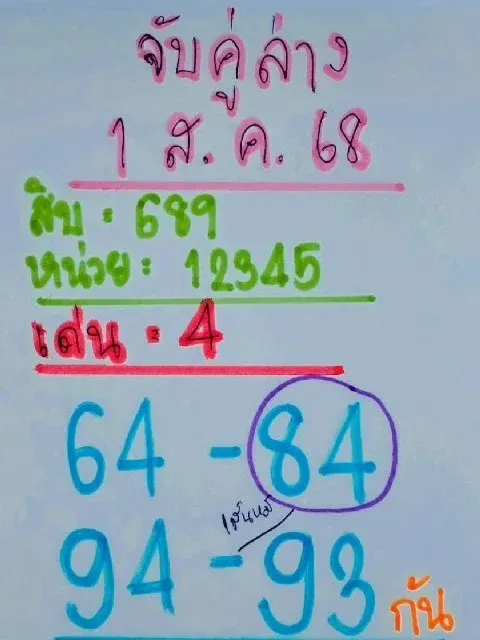 จับคู่ล่าง
1 ส.ค. 68
สิบ : 689
หน่วย : 12345
เด่น : 4
64 - 84
94 - 93 กัน